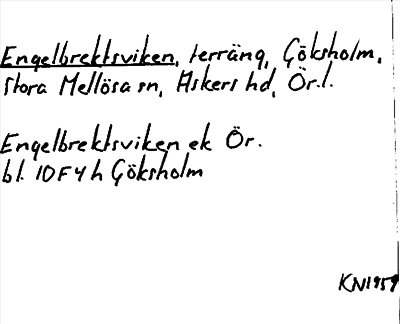 Engelbrektsviken, terräng, Göksholm,
Stora Mellösa sn, Askers hd, Ör.l.
Engelbrektsviken ek Ör.
bl. 10F4h Göksholm
KN1959